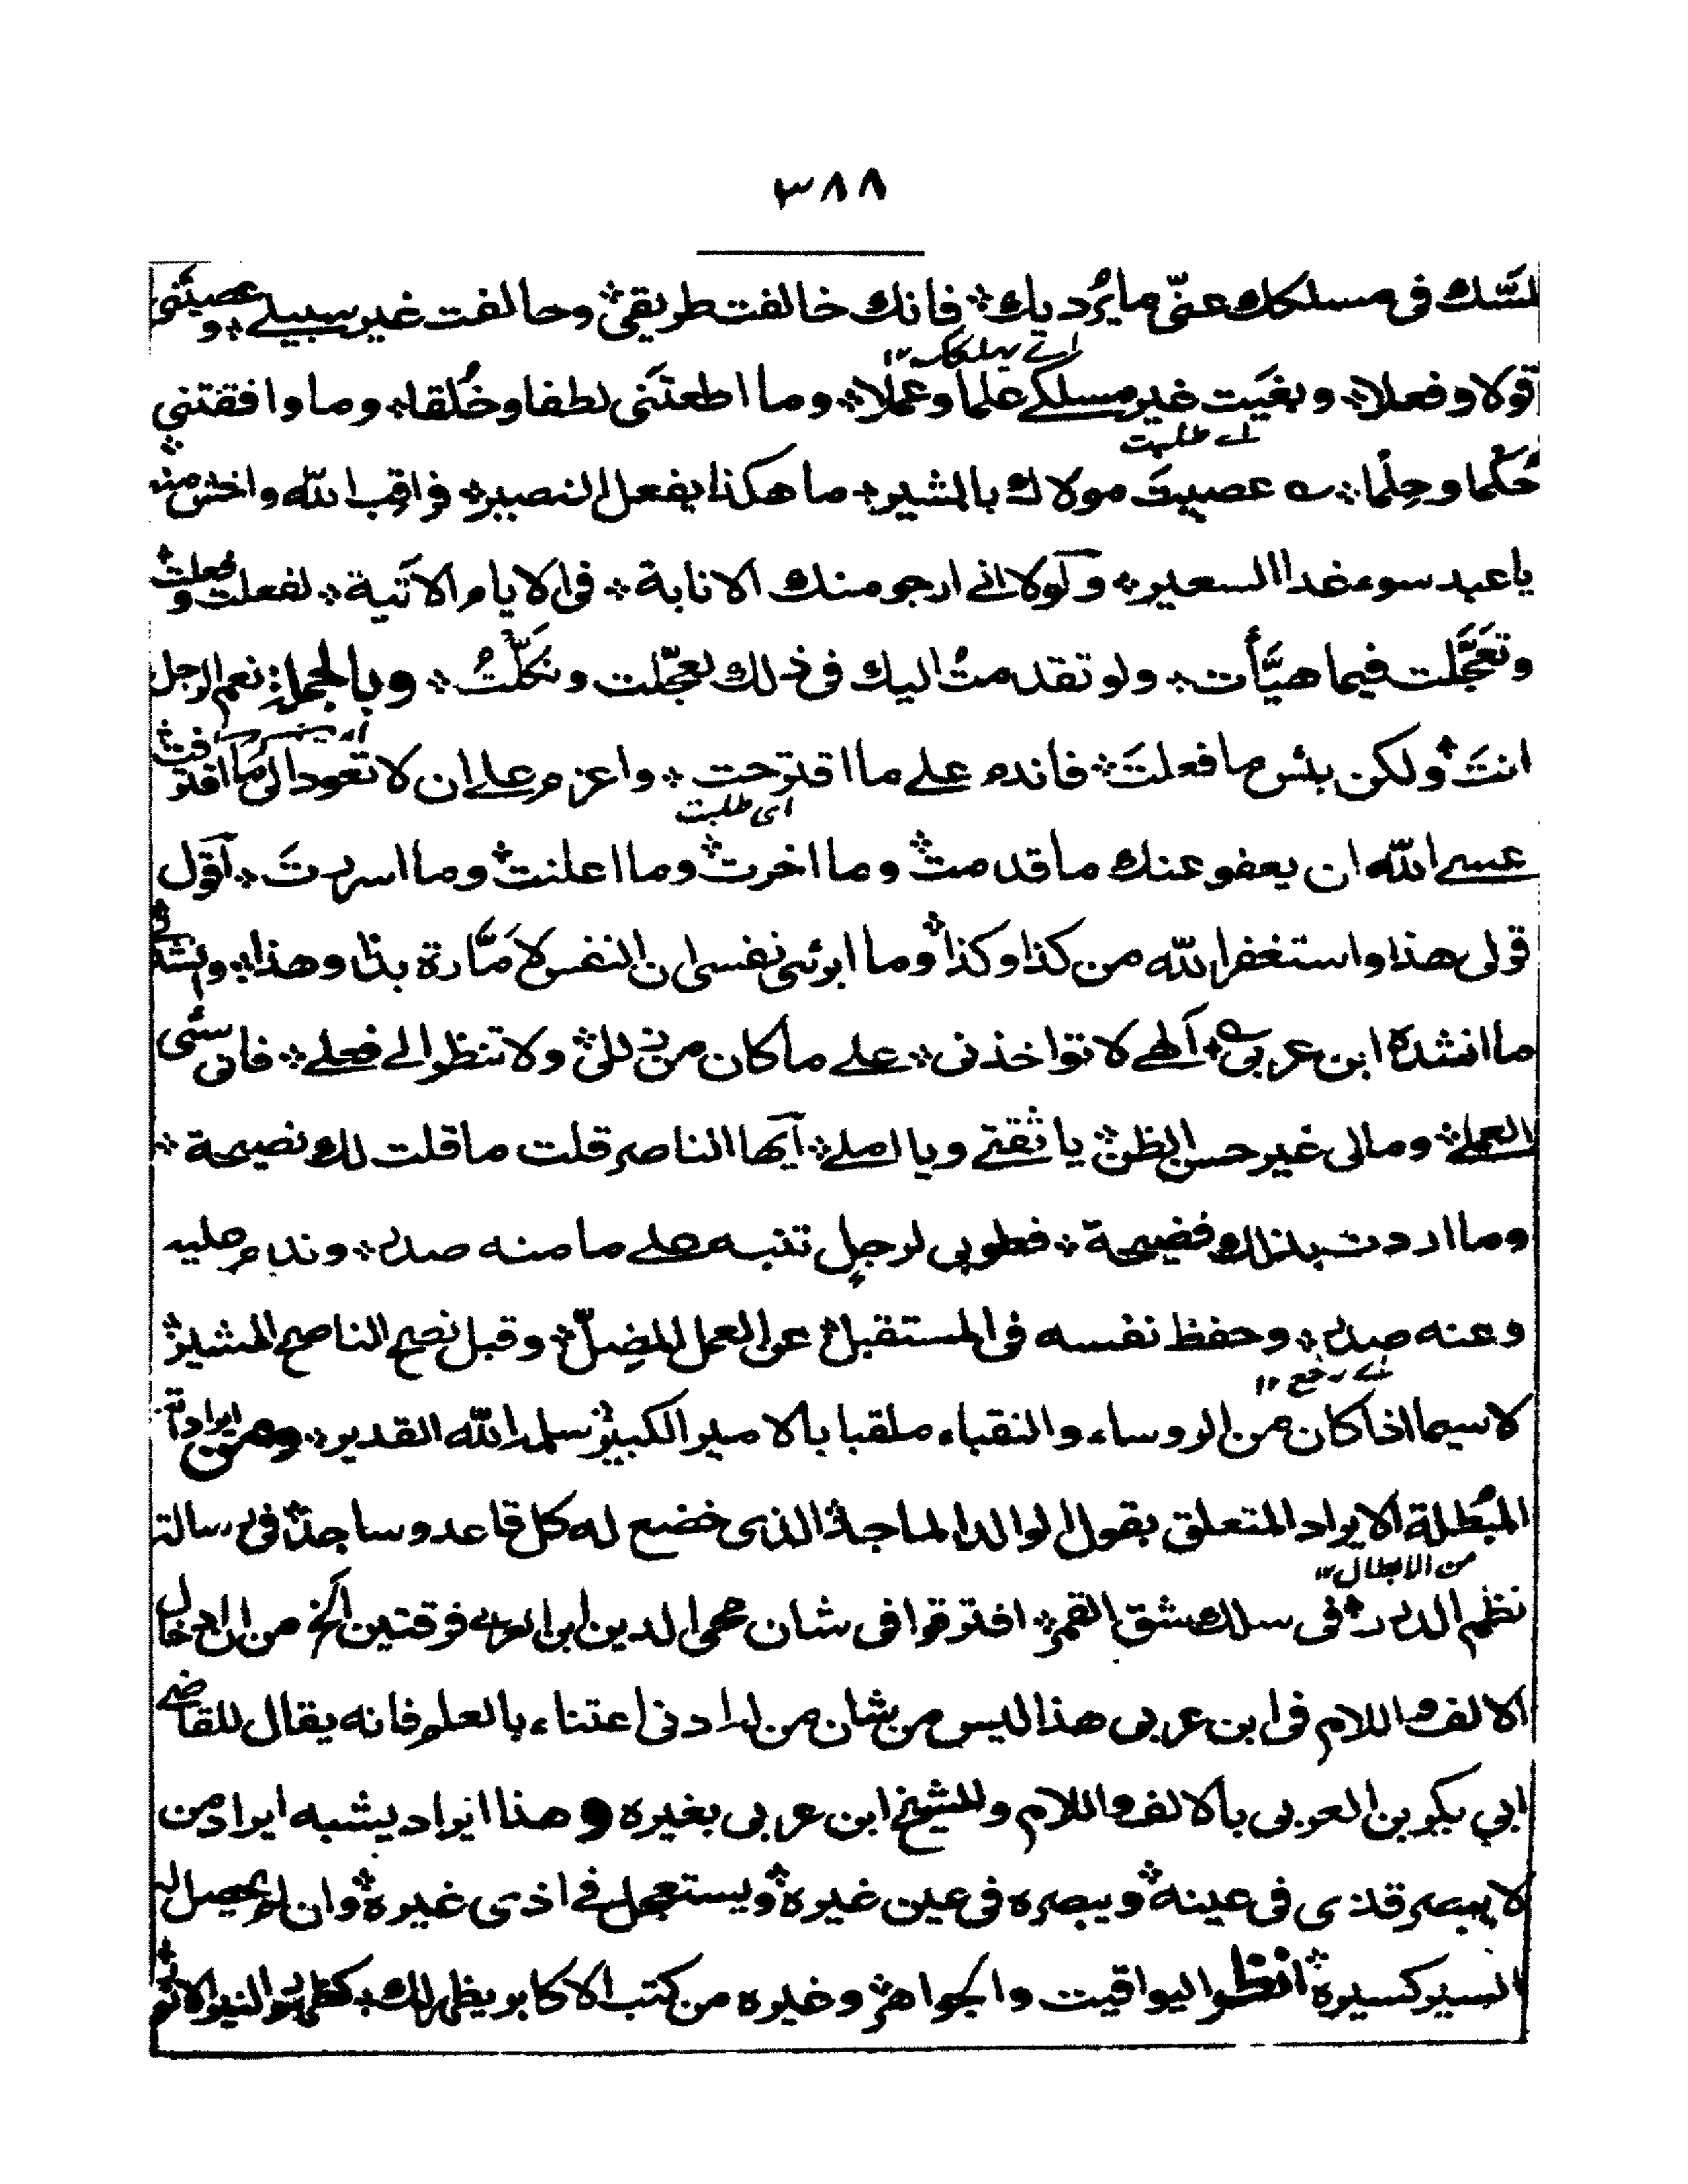 ٣٨٨
لمسّك في مسلكك عنّي ما يُرديك ۞ فانك خالفت طريقي ۞ وحالفت غير سبيلے ۞ وعصيتَني
اے يهلكك ١٢
قولا وفعلا ۞ وبغيَت غير مسلكے علما وعملا ۞ وما اطعتَني لطفا وخُلقا ۞ وما وافقتني
اے طلبت
حُكما وحِلما ۞ عصيتَ مولاك بالمشير ۞ ما هكذا يفعل النصير ۞ فراقب الله واخش منه
يا عبد سوء غدا السعير ۞ ولولا اني ارجو منك الانابة ۞ في الايام الاتية ۞ لفعلت وفعلت ۞
وتعجَّلت فيما هيَّأت ۞ ولو تقدمتُ اليك في ذلك لعجّلت ونكّلتُ ۞ وبالجملة نعم الرجل
انتَ ۞ ولكن بئس ما فعلتَ ۞ فاندم علے ما اقترحت ۞ واعزم علے ان لا تعود الى ما اقترفت ۞
اى طلبت
عسے الله ان يعفو عنك ما قدمت ۞ وما اخرت ۞ وما اعلنت ۞ وما اسررتَ ۞ اقول
قولى هذا واستغفر الله من كذا وكذا ۞ وما ابرئ نفسى ان النفس لامّارة بذا وهذا ۞
ما انشده ابن عربى ۞ الهے لا تواخذنى ۞ علے ما كان من زللى ۞ ولا تنظر الے فعلے ۞ فانى سئى
العملے ۞ ومالى غير حسن الظن ۞ يا ثقتے ويا املے ۞ ايها الناصر قلت ما قلت لك نصيحة ۞
وما اردت بذلك فضيحة ۞ فطوبى لرجلٍ تنبه علے ما منه صدر ۞ وندم عليه
وعنه صدر ۞ وحفظ نفسه فى المستقبل ۞ عن العمل المضِلّ ۞ وقبل نصح الناصح المشير ۞
اے رجع ١٢
لا سيما اذا كان من الروساء والنقباء ملقبا بالامير الكبير ۞ سلمه الله القدير ۞ ومن ايراداته
المبُطلة الايراد المتعلق بقول الوالد الماجد ۞ الذى خضع له كل قاعد وساجد ۞ فى رسالته
من الابطال ١٢
نظم الدرر ۞ فى سلك شق القمر ۞ افترقوا فى شان محى الدين ابن العربى فرقتين الخ من ان ادخال
الالف واللام فى ابن عربى هذا ليس من شان من له ادنى اعتناء بالعلم فانه يقال للقاضے
ابي بكر بن العربى بالالف واللام وللشيخ ابن عربى بغيره وهذا ايراد يشبه ايراد من
لا يبصر قذى فى عينه ۞ ويبصره فى عين غيره ۞ ويستعجل فے اذى غيره ۞ وان لم يحصل له
السير كسيره ۞ انظر اليواقيت والجواهر ۞ وغيره من كتب الاكابر يظهر لك ۞ كظهور النير الانور